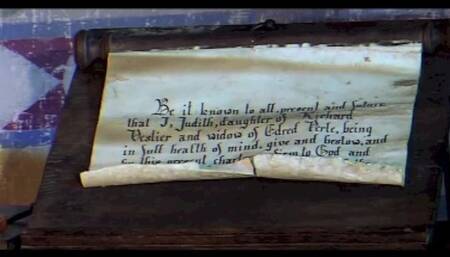 Be it known to all, present and future
that I, Judith, daughter of Richard
Vestier and widow of Edred Perle, being
in full health of mind, give and bestow, and
by this present charter to God and